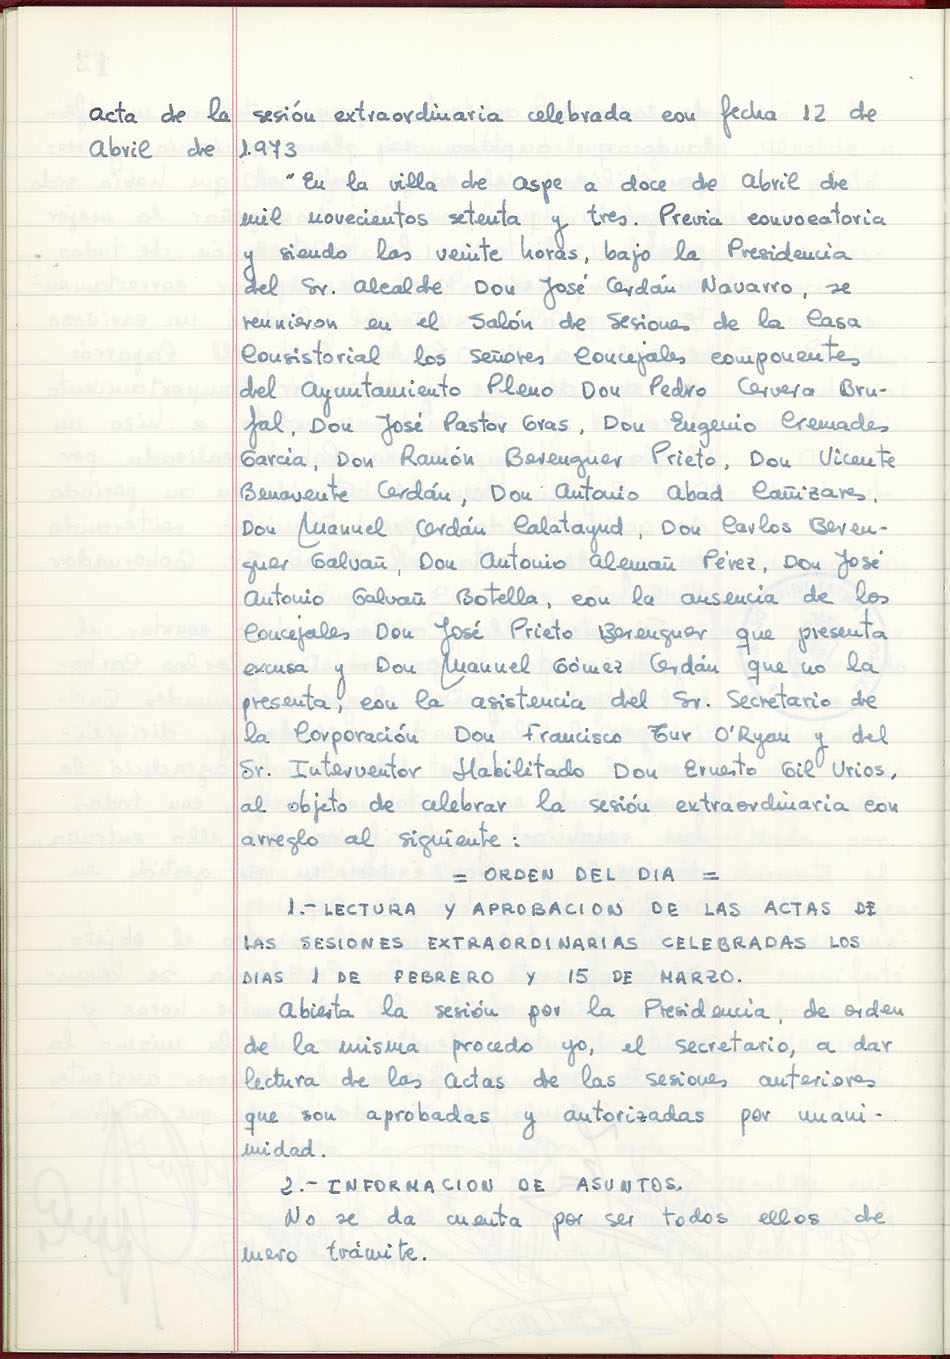 Acta de la sesión extraordinaria celebrada con fecha 12 de
Abril de 1.973
"En la villa de Aspe a doce de Abril de
mil novecientos setenta y tres. Previa convocatoria
y siendo las veinte horas, bajo la Presidencia
del Sr. Alcalde Don José Cerdán Navarro, se
reunieron en el Salón de Sesiones de la Casa
Consistorial los señores Concejales componentes
del Ayuntamiento Pleno Don Pedro Cervera Bru-
fal, Don José Pastor Gras, Don Eugenio Cremades
García, Don Ramón Berenguer Prieto, Don Vicente
Benavente Cerdán, Don Antonio Abad Cañizares,
Don Manuel Cerdán Calatayud, Don Carlos Beren-
guer Galvañ, Don Antonio Alemañ Pérez, Don José
Antonio Galvañ Botella, con la ausencia de los
Concejales Don José Prieto Berenguer que presenta
excusa y Don Manuel Gómez Cerdán que no la
presenta, con la asistencia del Sr. Secretario de
la Corporación Don Francisco Tur O'Ryan y del
Sr. Interventor Habilitado Don Ernesto Gil Urios,
al objeto de celebrar la sesión extraordinaria con
arreglo al siguiente:
= ORDEN DEL DIA =
1.- LECTURA Y APROBACION DE LAS ACTAS DE
LAS SESIONES EXTRAORDINARIAS CELEBRADAS LOS
DIAS 1 DE FEBRERO Y 15 DE MARZO.
Abierta la sesión por la Presidencia, de orden
de la misma procedo yo, el secretario, a dar
lectura de las Actas de las sesiones anteriores
que son aprobadas y autorizadas por unani-
midad.
2.- INFORMACION DE ASUNTOS.
No se da cuenta por ser todos ellos de
mero trámite.